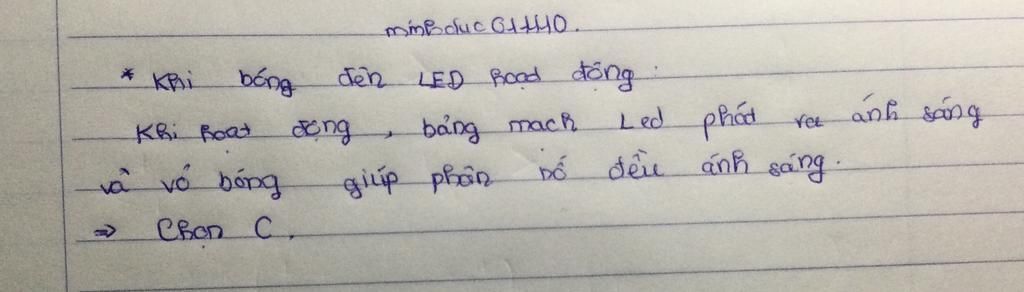 minhduc61110.
* Khi bóng đèn LED hoạt động :
Khi hoạt động , bảng mạch Led phát ra ánh sáng
và vỏ bóng giúp phân bố đều ánh sáng.
⇒ Chọn C.